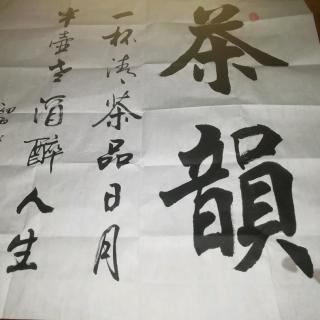 茶韻
一杯清茶品日月
半壶老酒醉人生